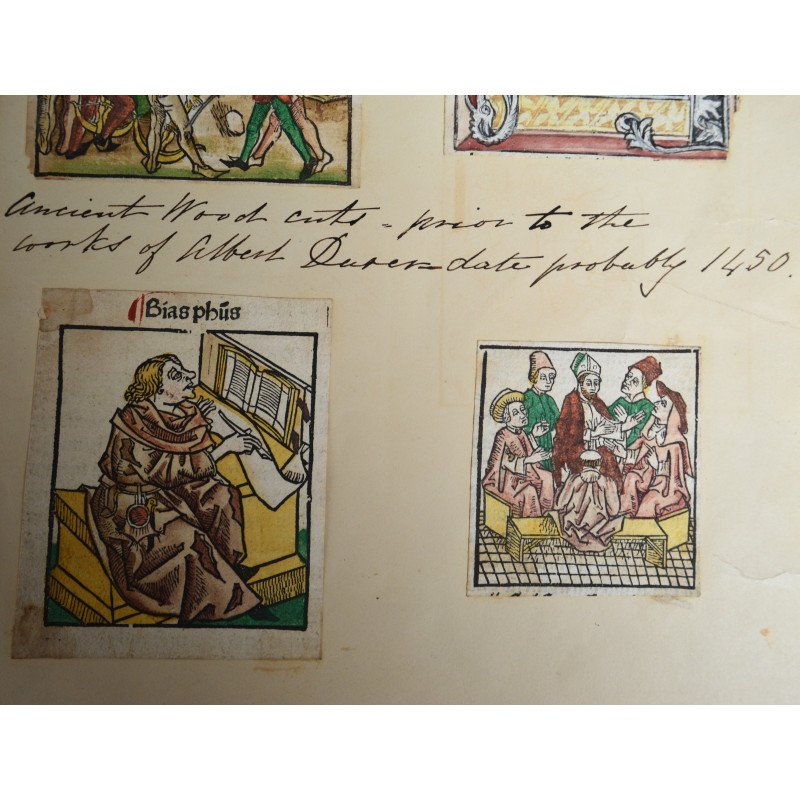 Ancient Wood cuts - prior to the
works of Albert Durer - date probably 1450.
Bias phūs